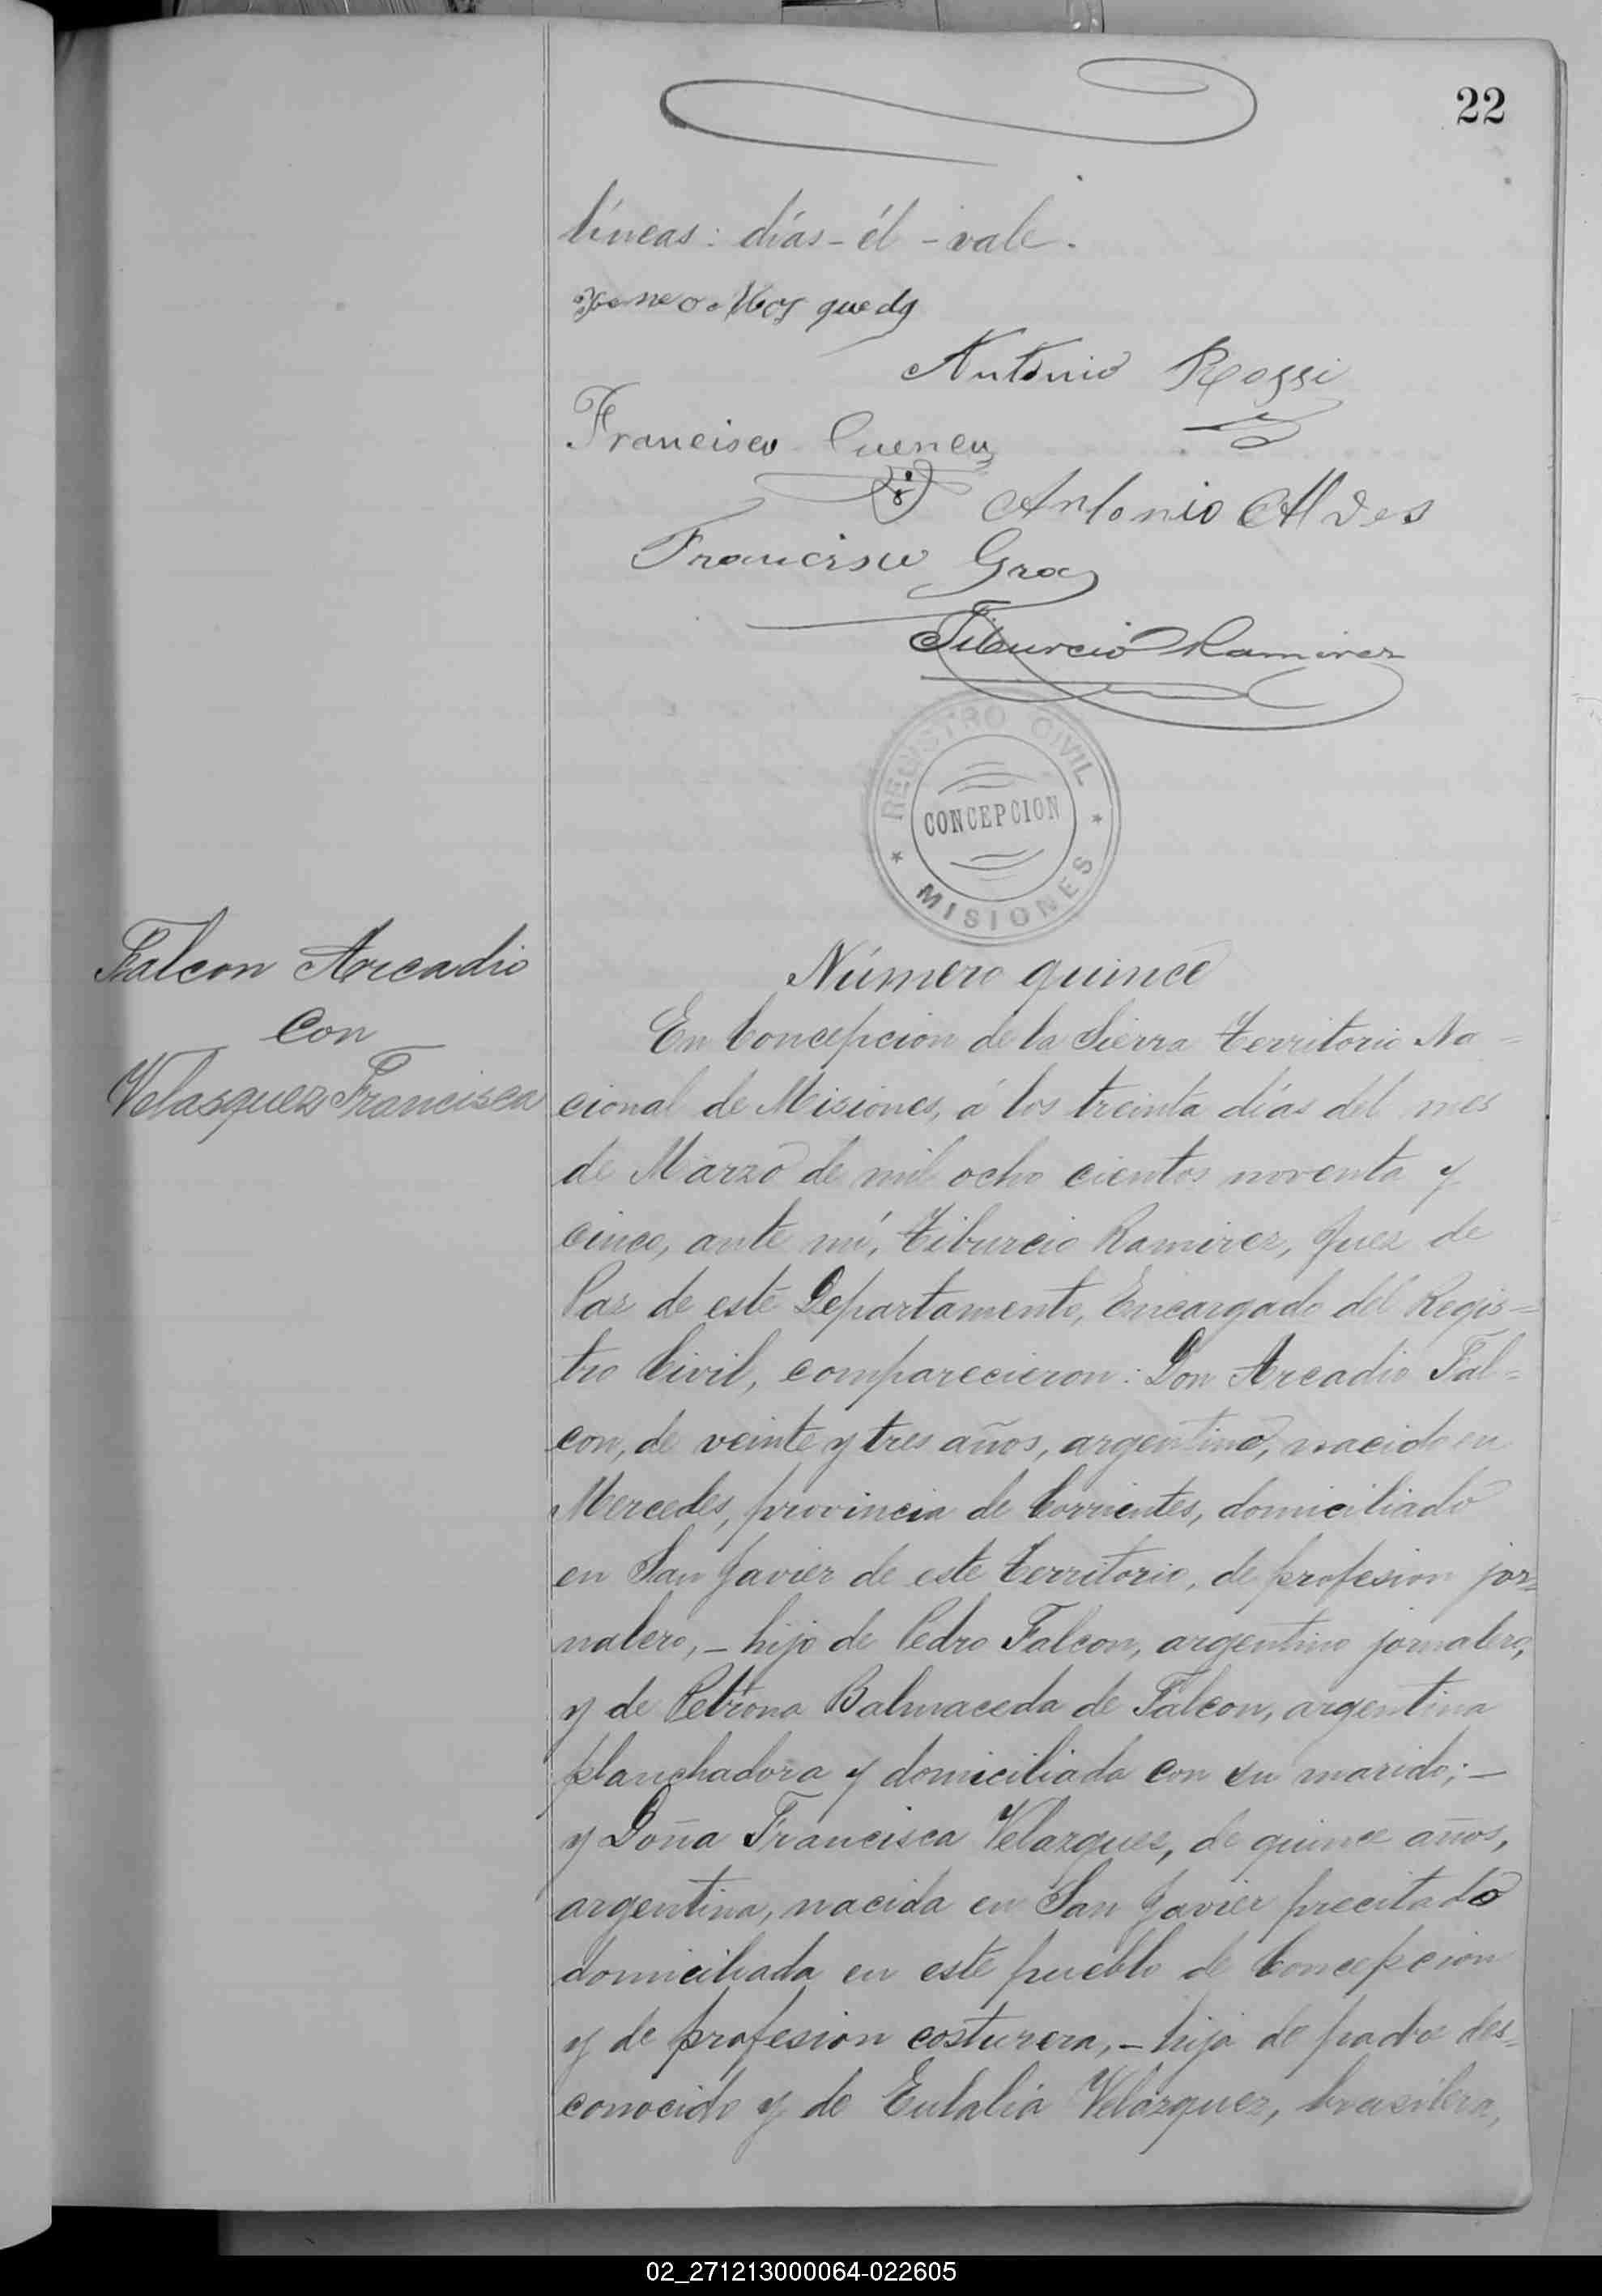 22
líneas: días - él - vale.
Antonio Rossi
Francisco Cuenca
Antonio Alves
Francisco Gra
Tiburcio Ramirez
REGISTRO CIVIL
CONCEPCION
MISIONES
Falcon Arcadio
con
Velasquez Francisca
Número quince
En Concepcion de la Sierra Territorio Na=
cional de Misiones, á los treinta días del mes
de Marzo de mil ocho cientos noventa y
cinco, ante mí, Tiburcio Ramirez, Juez de
Paz de este Departamento, Encargado del Regis=
tro Civil, comparecieron: Don Arcadio Fal=
con, de veinte y tres años, argentino, nacido en
Mercedes, provincia de Corrientes, domiciliado
en San Javier de este Territorio, de profesion jor=
nalero, - hijo de Pedro Falcon, argentino jornalero,
y de Petrona Balmaceda de Falcon, argentina
planchadora y domiciliada con su marido; -
y Doña Francisca Velazquez, de quince años,
argentina, nacida en San Javier precitado
domiciliada en este pueblo de Concepcion
y de profesion costurera, - hija de padre des=
conocido y de Eulalia Velázquez, brasilera,
02_271213000064-022605